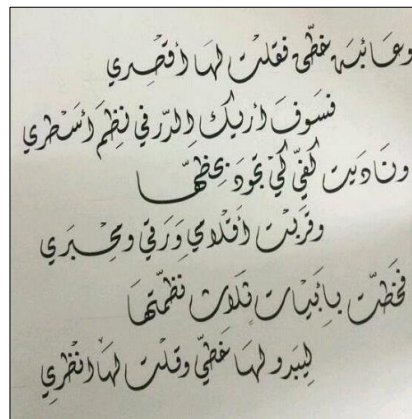 وعائبة خطّى فقلت لها أقصري
فسوف أريك الدّر في نظم أسطري
وناديت كفيّ كي تجود بخطّها
وقربت أقلامي ورقي ومحبري
فخطّت بأبيات ثلاث نظمتها
ليبدو لها خطّيّ وقلت لها انظري